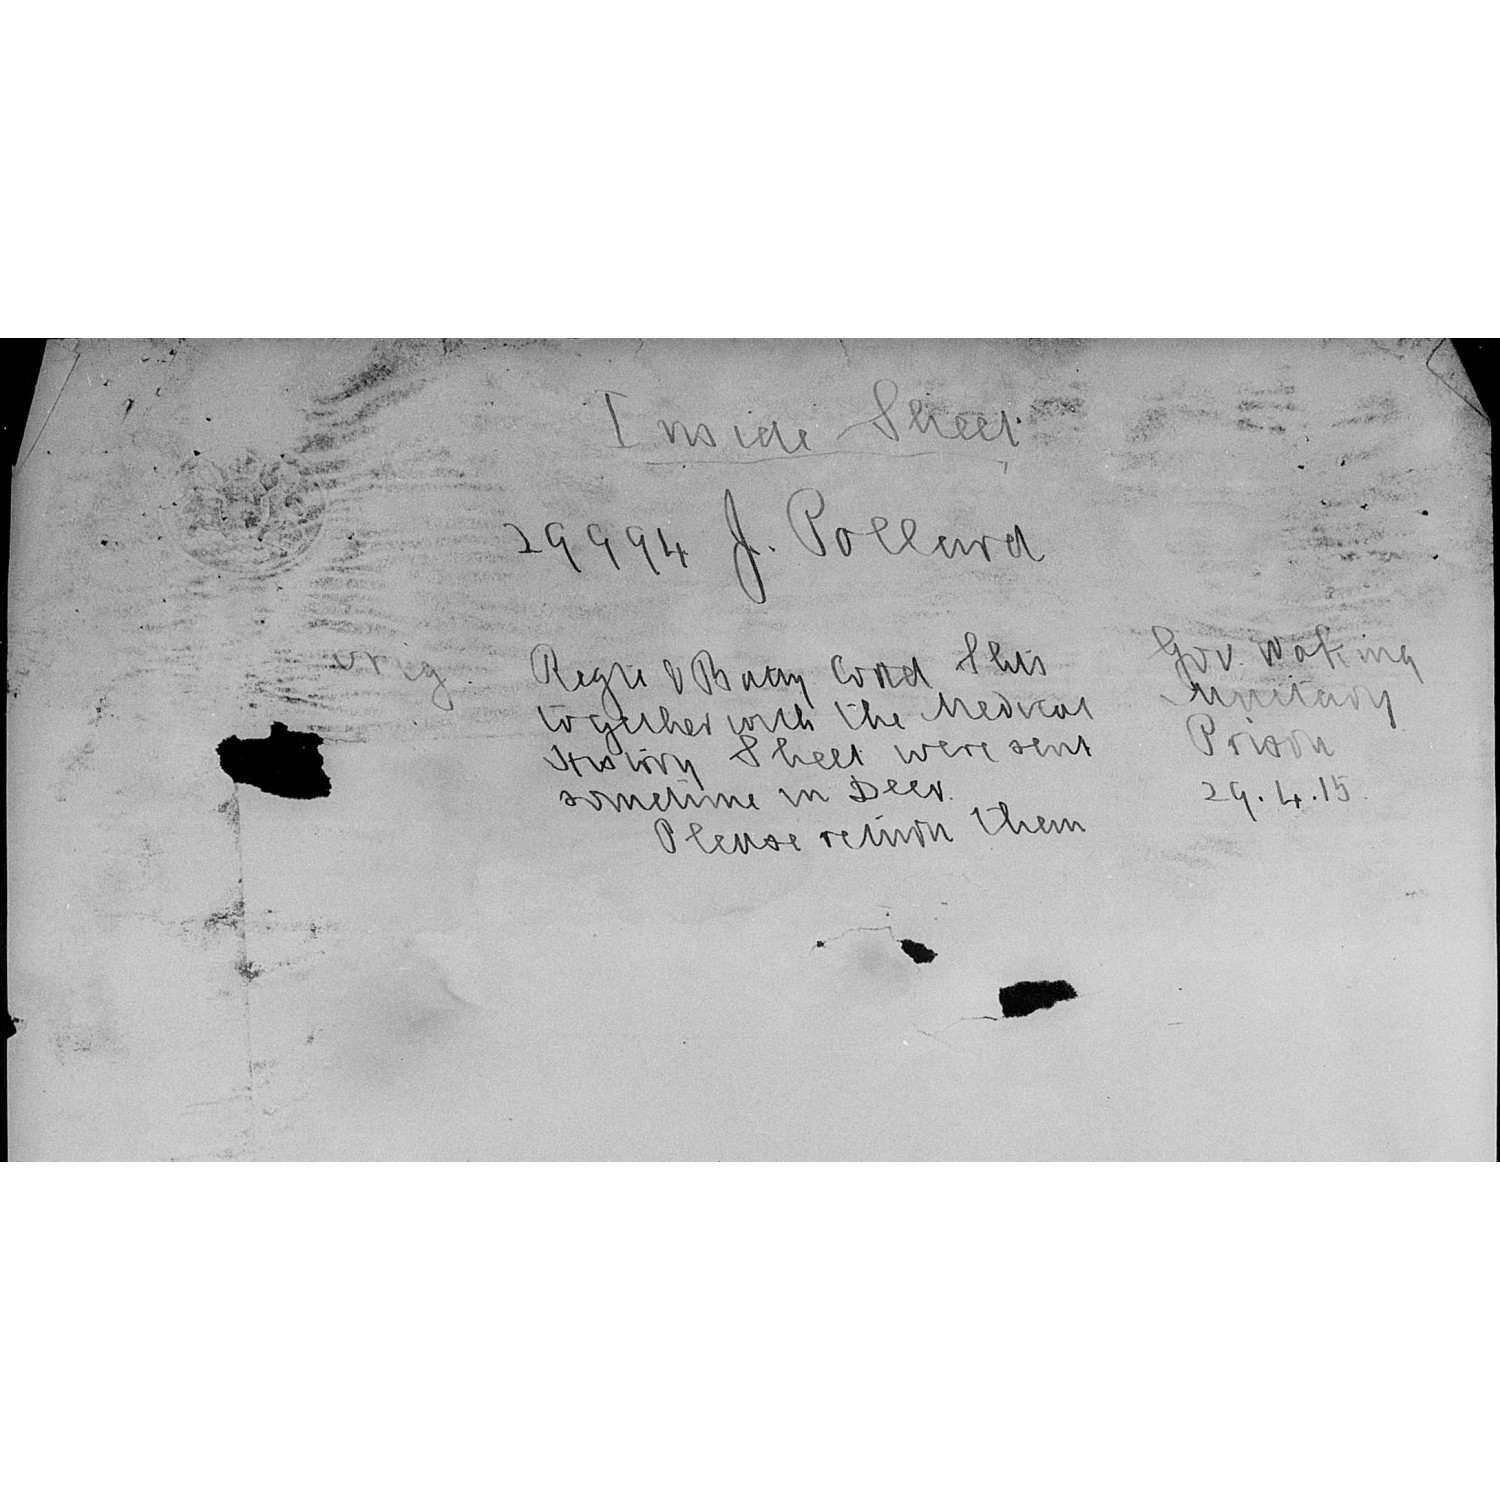 Inside Sheet
29994 J. Pollard
orig. Regtl & Batty Cond Shts
together with the Medical
History Sheet were sent
sometime in Decr.
Please return them
Gov. Woking
Military
Prison
29.4.15.